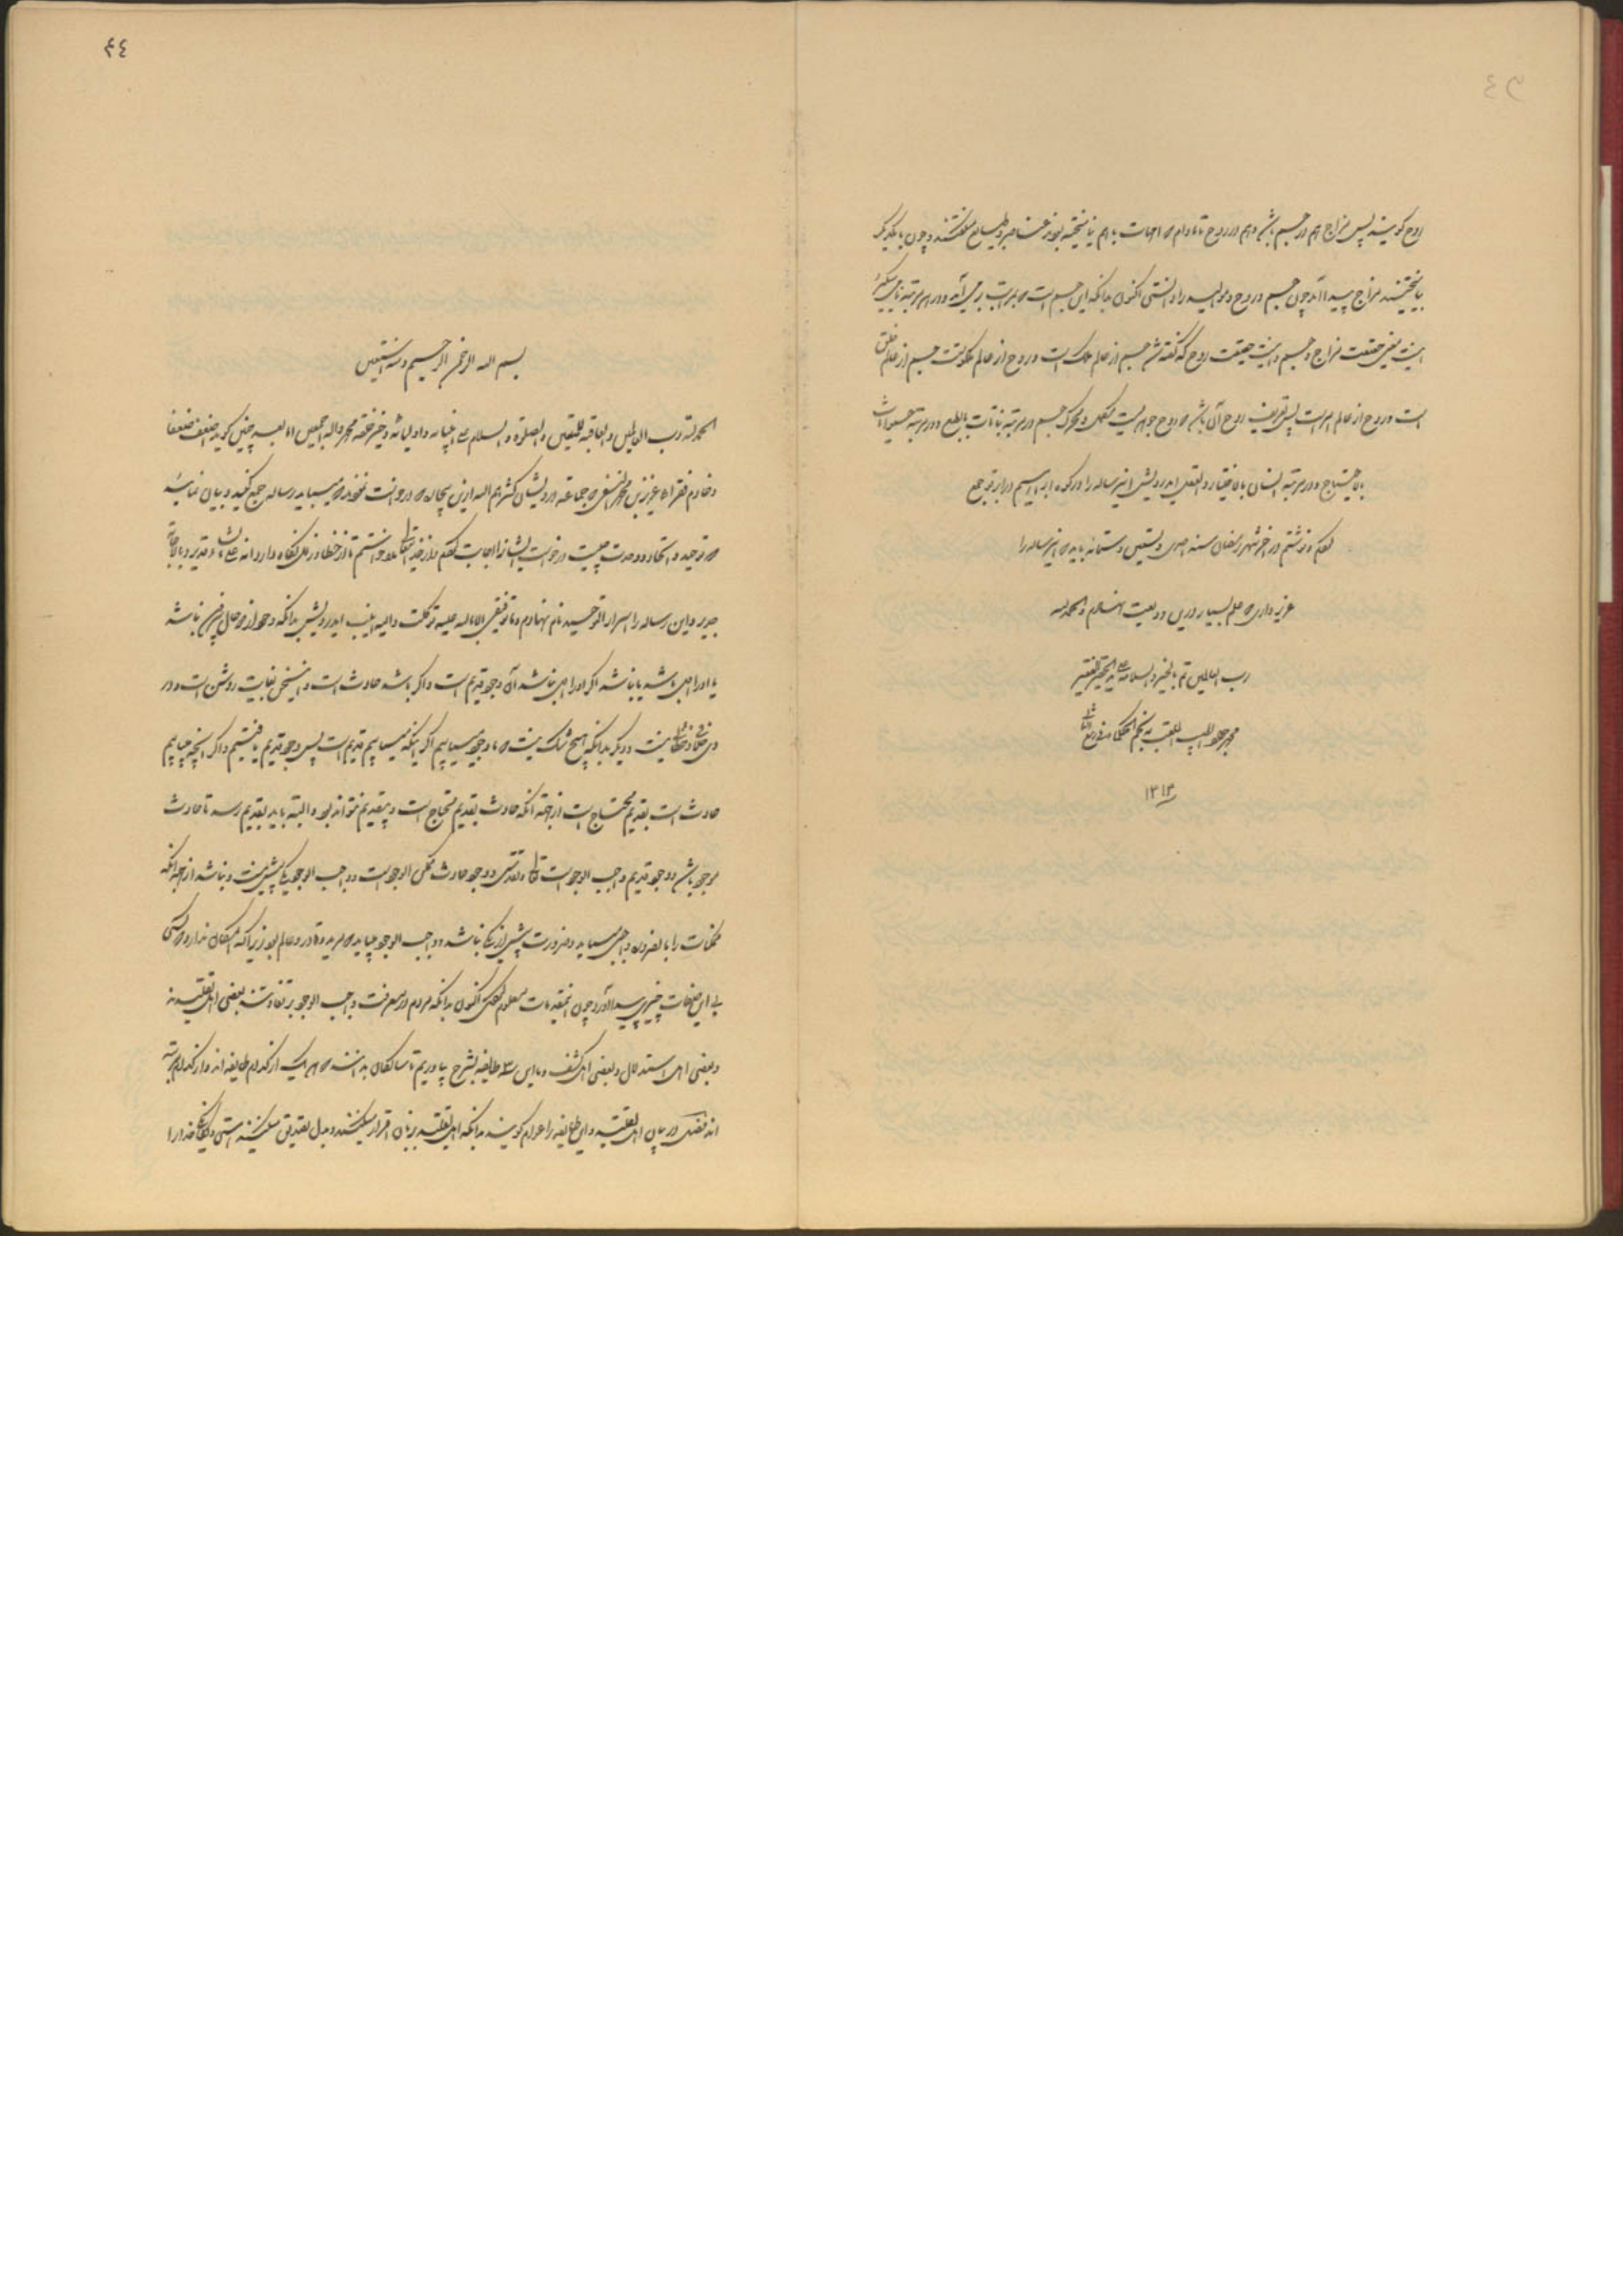 روح گویند پس مزاج هم در جسم باشد و هم در روح تا مادام که امهات با هم نیامیخته بودند عناصر و طبایع میگفتند و چون با یکدیگر
بیامیختند مزاج پیدا آمد چون جسم و روح و موالید را دانستی اکنون بدانکه این جسم است که بمراتب برمی‌آید و در هر مرتبه نامی میگیرد
اینست معنی حقیقت مزاج و جسم و اینست حقیقت روح که گفته شد جسم از عالم ملک است و روح از عالم ملکوتست جسم از عالم خلق
است و روح از عالم امر است پس تعریف روح آن باشد که روح جوهریست مکمل و محرک جسم در مرتبه نباتات بالطبع و در مرتبه حیوانات
بالاحتیاج و در مرتبه انسان بالاختیار والعقل ایدرویش این رساله را در کوه ابراهیم در ابرقو جمع
کردم و نوشتم در آخر شهر رمضان سنه احدی و ستین و ستمائه باید که این رساله را
عزیز داری که علم بسیار درین ودیعت نهادم والحمدلله
رب العالمین تم بالخیر والسلامه علی ید الحقیر الفقیر
محمد جواد الطبیب الملقب بنجم الحکما فی ربیع الثانی
۱۳۱۳
٤٤
بسم الله الرحمن الرحیم وبه نستعین
الحمدلله رب العالمین والعاقبه للمتقین والصلوة والسلام علی انبیائه و اولیائه و خیر خلقه محمد و آله اجمعین اما بعد چنین گوید اضعف ضعفا
و خادم فقرا عزیز بن محمد النسفی که جماعته درویشان کثرهم الله ازین بیچاره درخواست نمودند که میباید رساله جمع کنید و بیان نمائید
که توحید و اتحاد و وحدت چیست درخواست ایشانرا اجابت کردم و از خدایتعالی مدد خواستم تا از خطا و زلل نگاه دارد انه علی مایشاء قدیر و بالاجابة
جدیر و این رساله را اسرار التوحید نام نهادم و ما توفیقی الا بالله علیه توکلت و الیه انیب ایدرویش بدانکه وجود از دو حال بیرون نباشد
یا او را اول باشد یا نباشد اگر او را اول نباشد آن وجود قدیم است و اگر باشد حادث است و این سخن بغایت روشن است و در
وی خلاف و خفائی نیست و دیگر بدانکه هیچ شک نیست که ما وجود مییابیم اگر اینکه مییابیم قدیم است پس وجود قدیم یافتیم و اگر آنچه مییابیم
حادث است بقدیم محتاج است از جهة آنکه حادث بقدیم محتاج است و بیقدیم نتواند بود و البته باید بقدیم رسد تا حادث
موجود باشد و وجود قدیم واجب الوجود است تعالی و تقدس و وجود حادث ممکن الوجود است و واجب الوجود یکی بیش نیست و نباشد از جهة آنکه
ممکنات را بالضروره واجبی میباید و ضرورت بیش از یکی نباشد و واجب الوجود میباید که مرید و قادر و عالم بود زیرا که امکان ندارد که کسی
بی این صفات چیزی پیدا آورد چون این مقدمات معلوم کردی اکنون بدانکه مردم در معرفت واجب الوجود بر تفاوتند بعضی اهل تقلیدند
و بعضی اهل استدلال و بعضی اهل کشف و ما این سه طایفه بشرح بیاوریم تا سالکان بدانند که هر یک از کدام طایفه اند و از کدام مرتبه
اند فصل در بیان اهل تقلید و این طایفه را عوام گویند بدانکه اهل تقلید بزبان اقرار میکنند و بدل تصدیق میکنند هستی و یگانگی خدا را